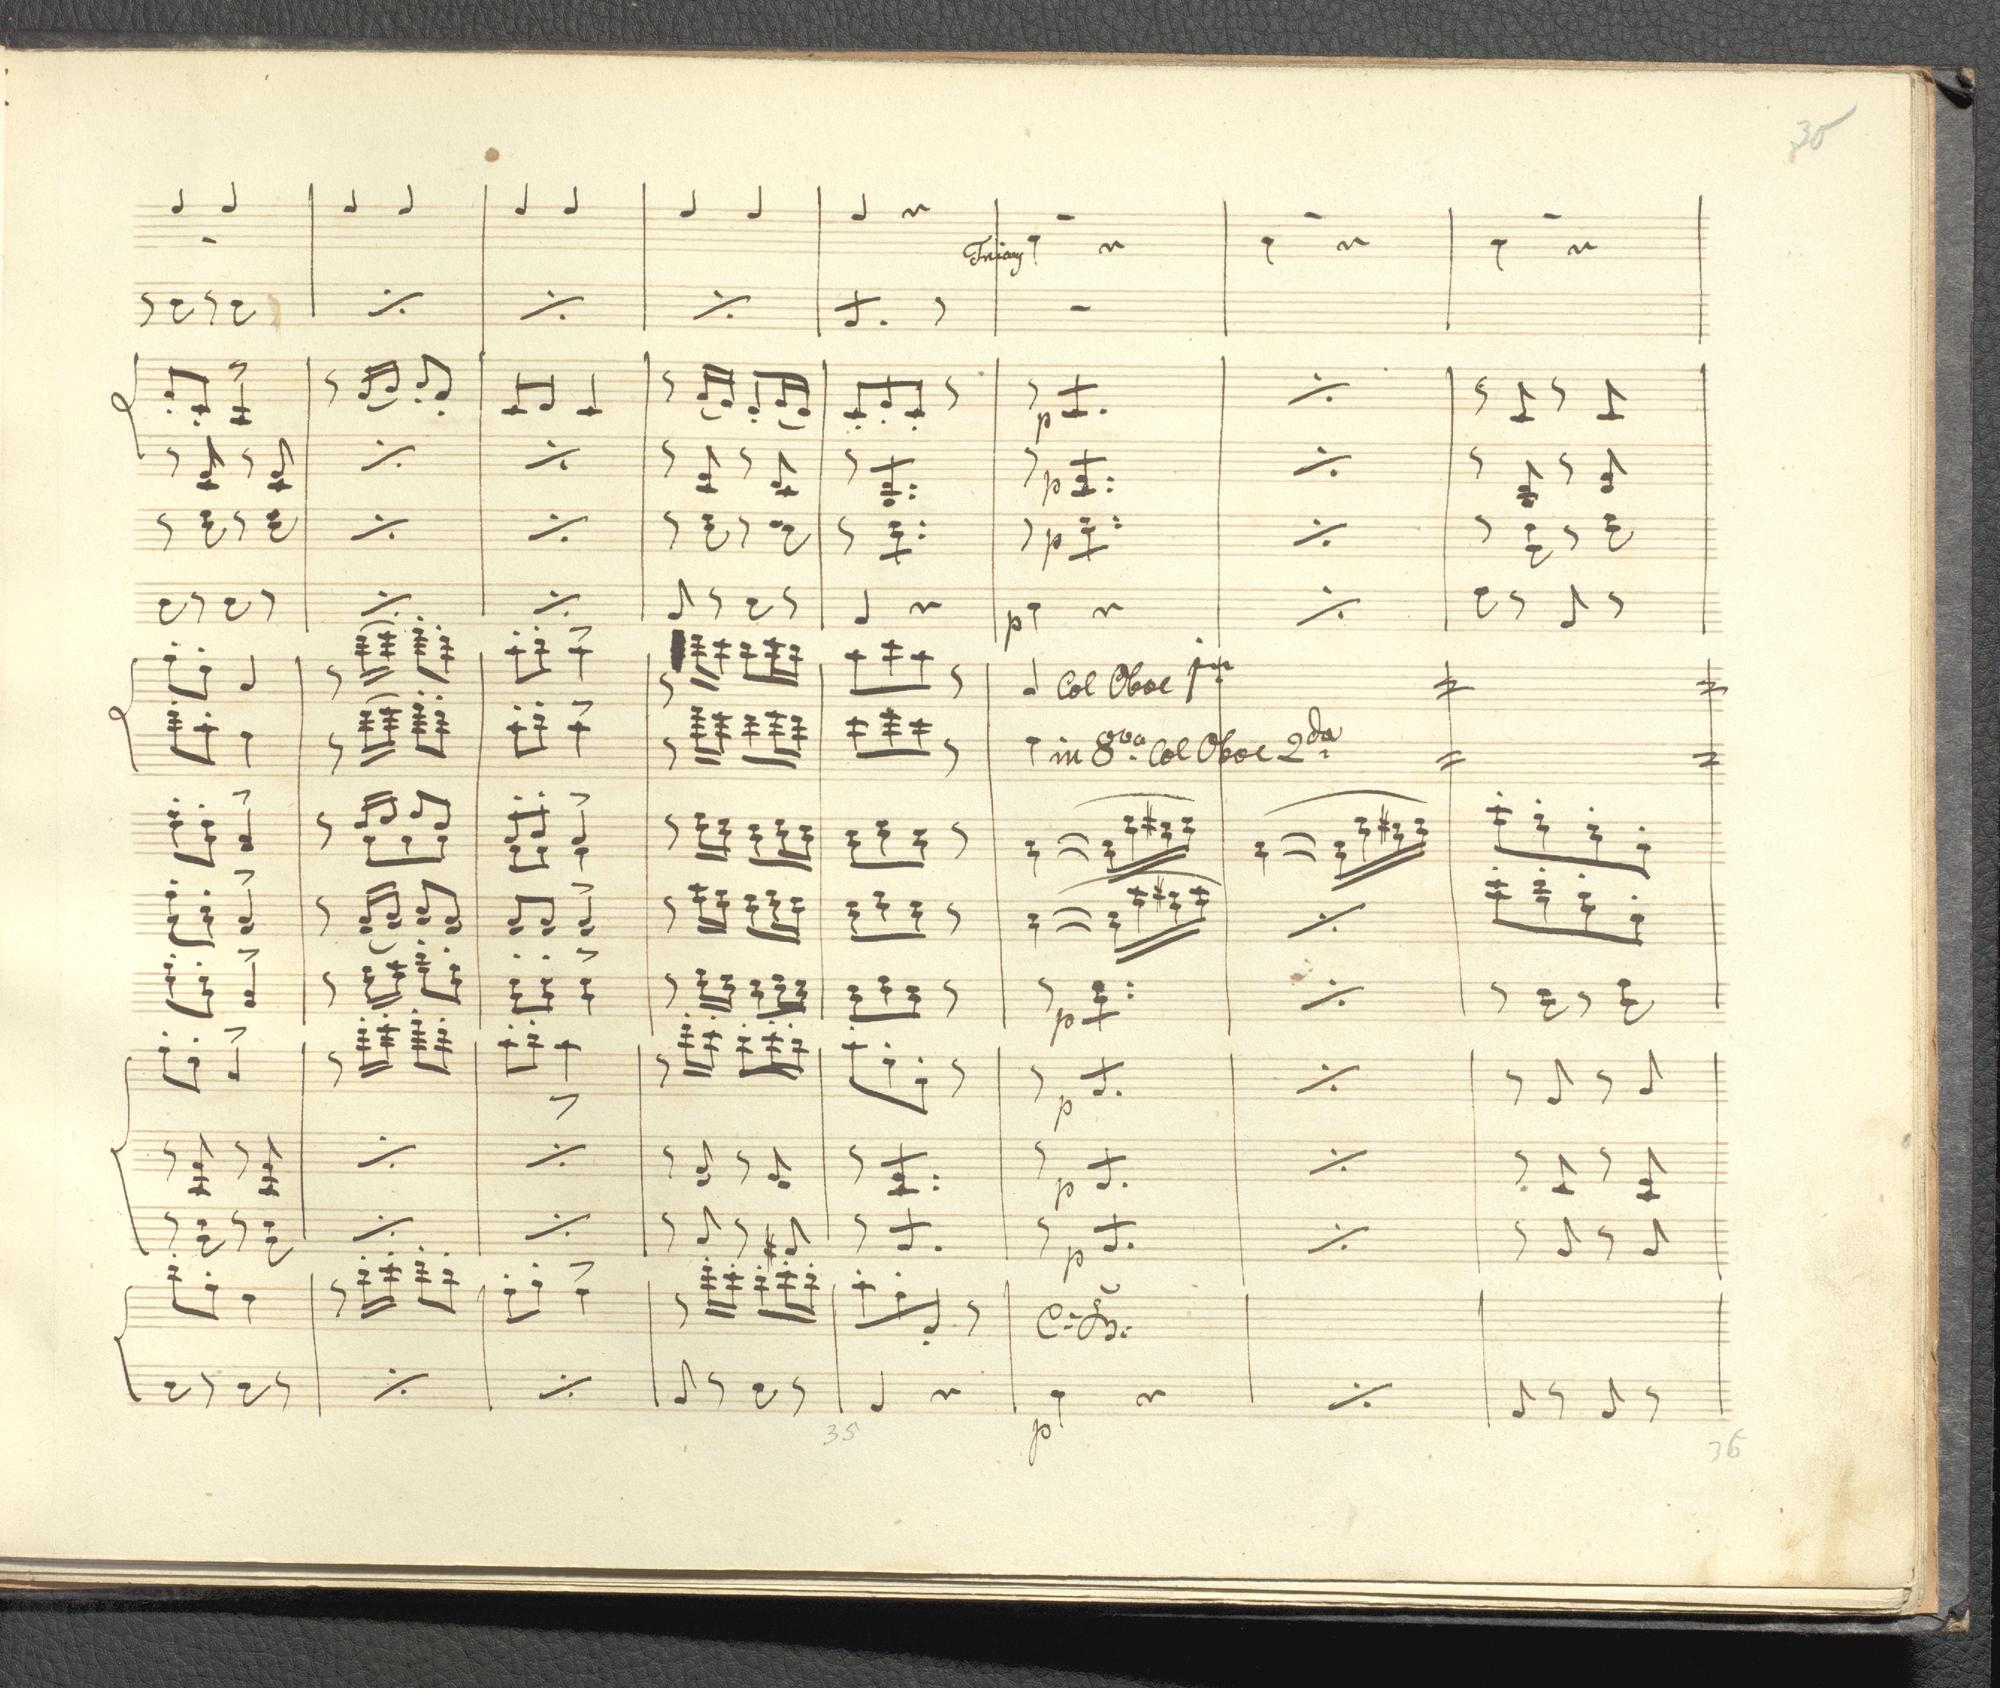 30
Triang
p
p
p
p
Col Oboe pmo
in 8va Col Oboe 2da
p
p
p
p
p
35
36